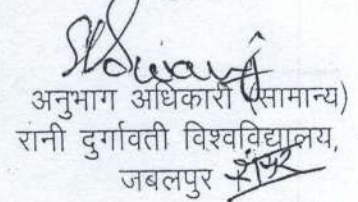 अनुभाग अधिकारी (सामान्य)
रानी दुर्गावती विश्वविद्यालय,
जबलपुर